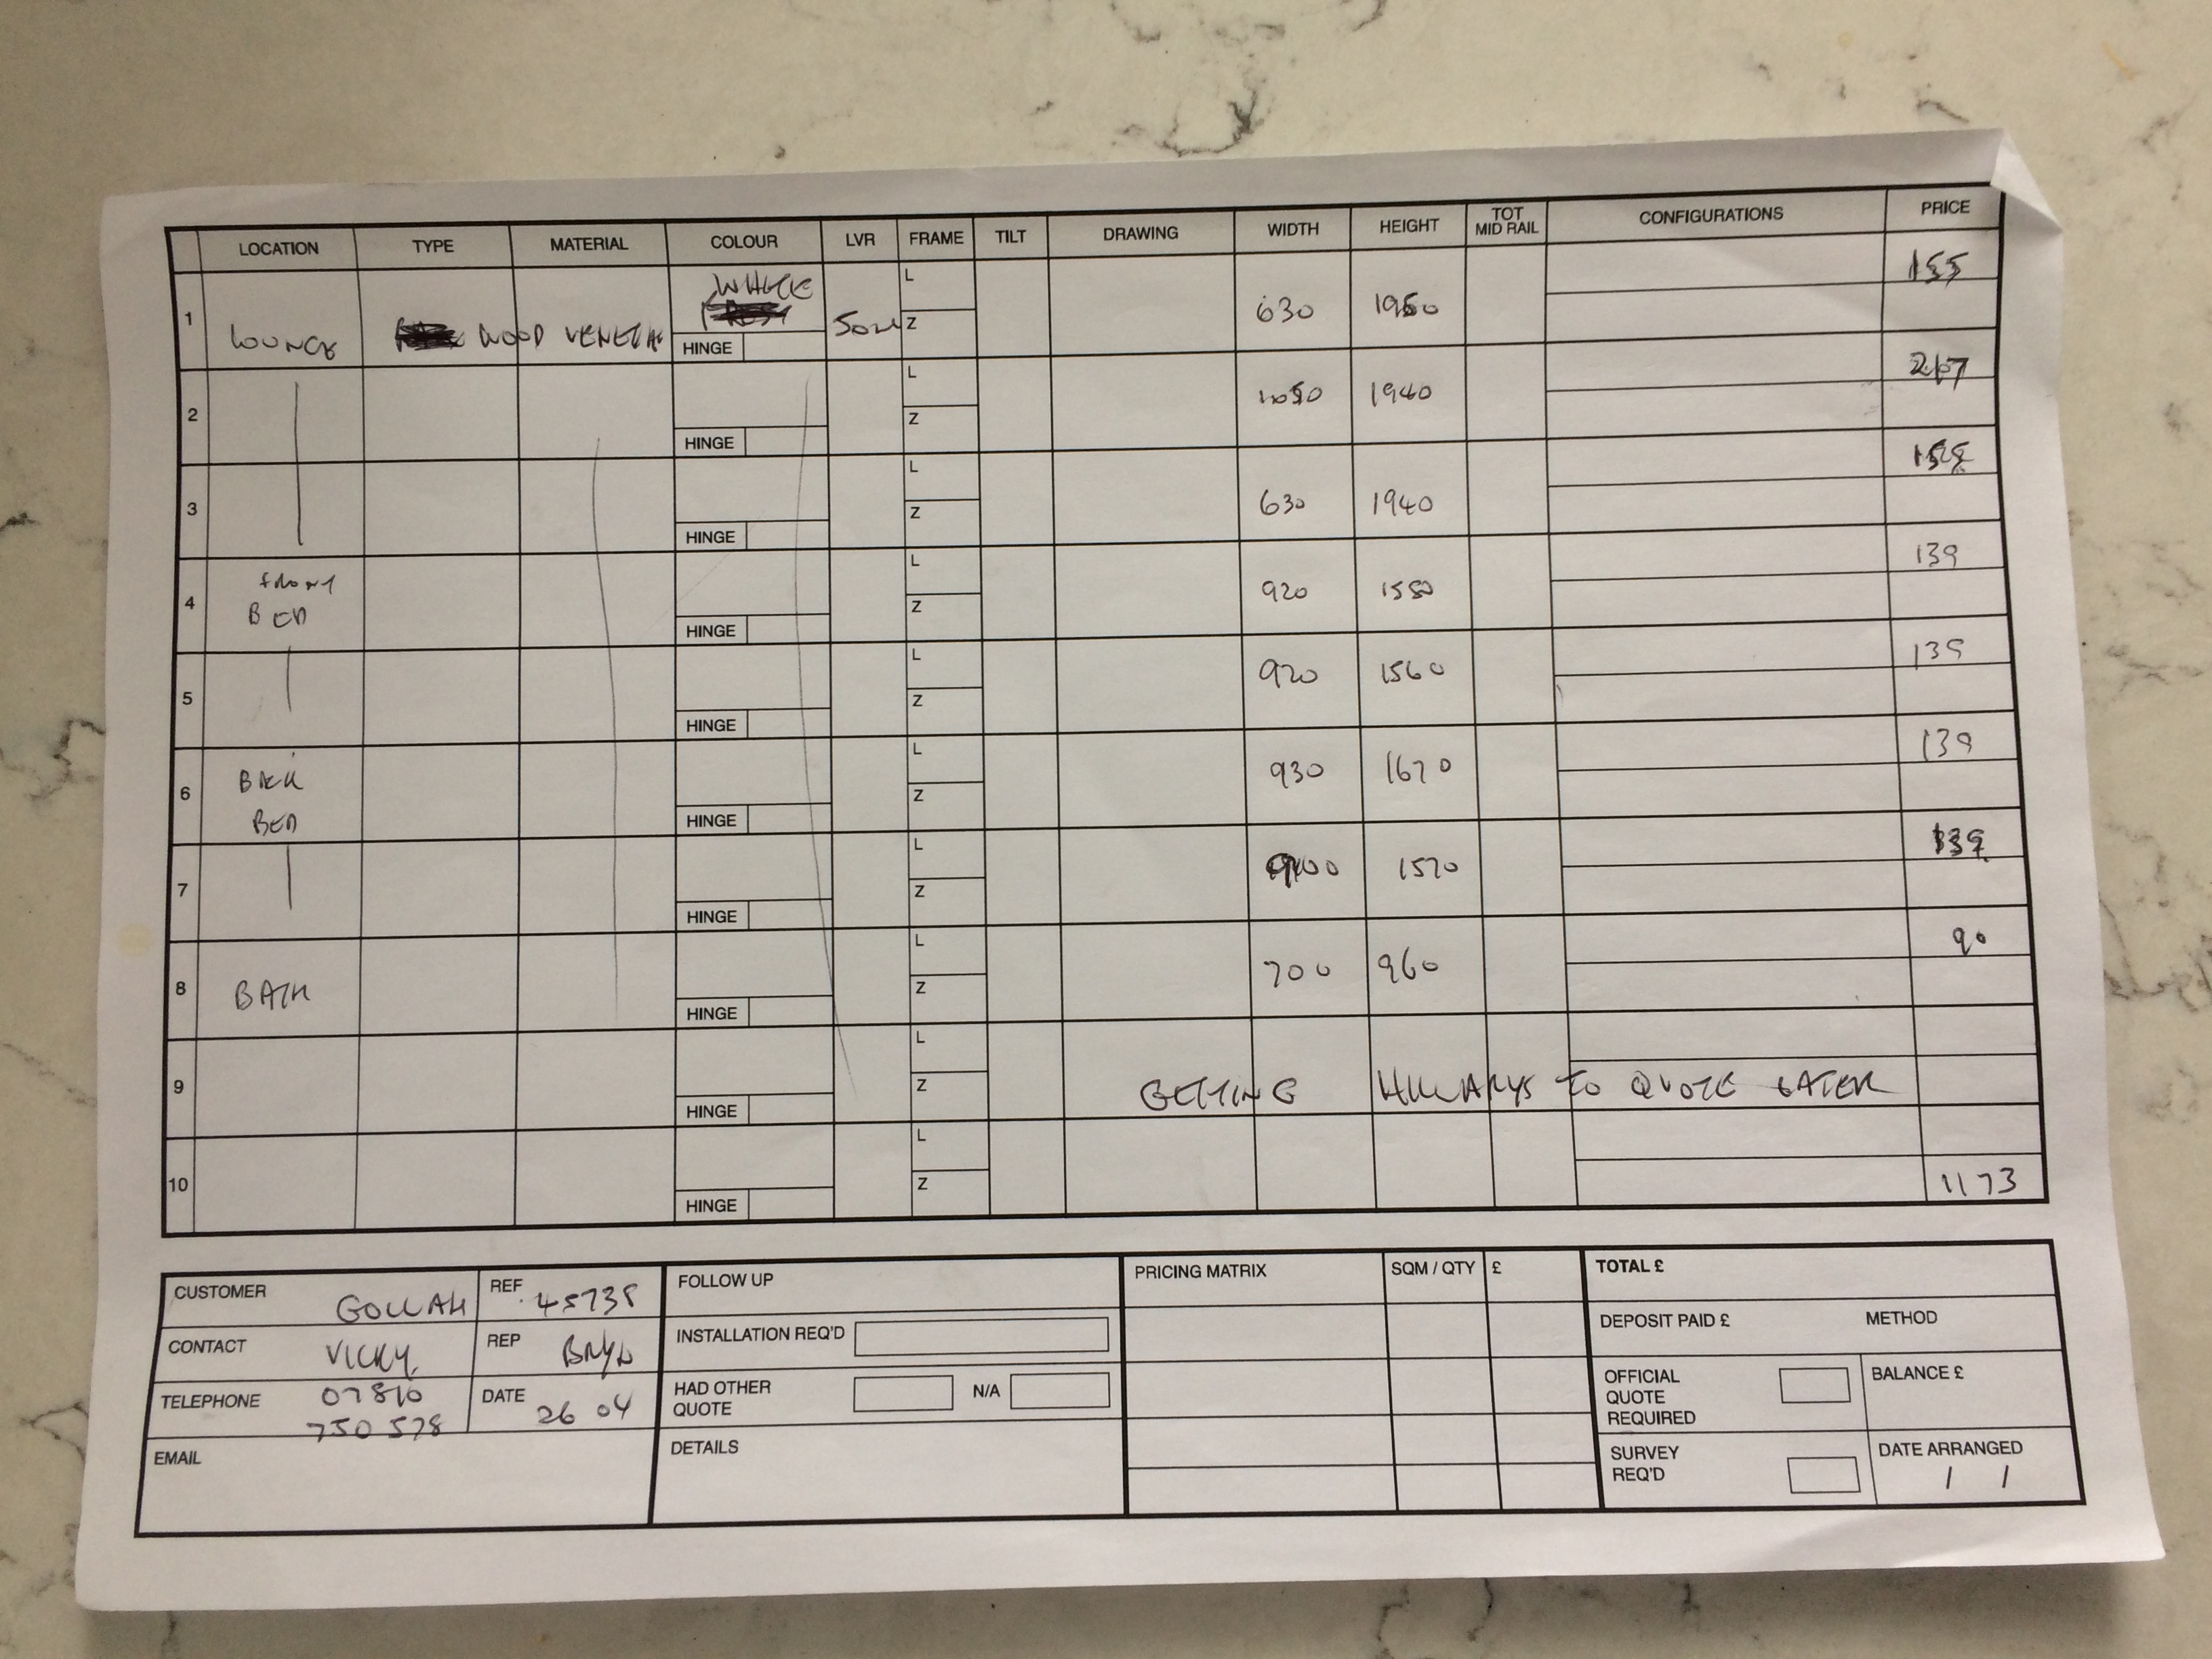 LOCATION TYPE MATERIAL COLOUR LVR FRAME TILT DRAWING WIDTH HEIGHT TOT MID RAIL CONFIGURATIONS PRICE
1 LOUNGE WOOD VENETIAN HINGE L Z 630 155
2 HINGE L Z 1940
3 HINGE L Z 630 1940
4 FRONT BED HINGE L Z 920 1550 139
5 HINGE L Z 920 1560 139
6 BACK BED HINGE L Z 930 1670 139
7 HINGE L Z 1570 139
8 BATH HINGE L Z 700 960 90
9 HINGE L Z GETTING HILLARYS TO QUOTE LATER
10 HINGE L Z 1173
CUSTOMER GOLLAH REF 45738
CONTACT VICKY REP BRYN
TELEPHONE 07810 750 578 DATE 26 04
EMAIL
FOLLOW UP
INSTALLATION REQ'D
HAD OTHER QUOTE N/A
DETAILS
PRICING MATRIX SQM / QTY £
TOTAL £
DEPOSIT PAID £ METHOD
OFFICIAL QUOTE REQUIRED BALANCE £
SURVEY REQ'D DATE ARRANGED
/ /